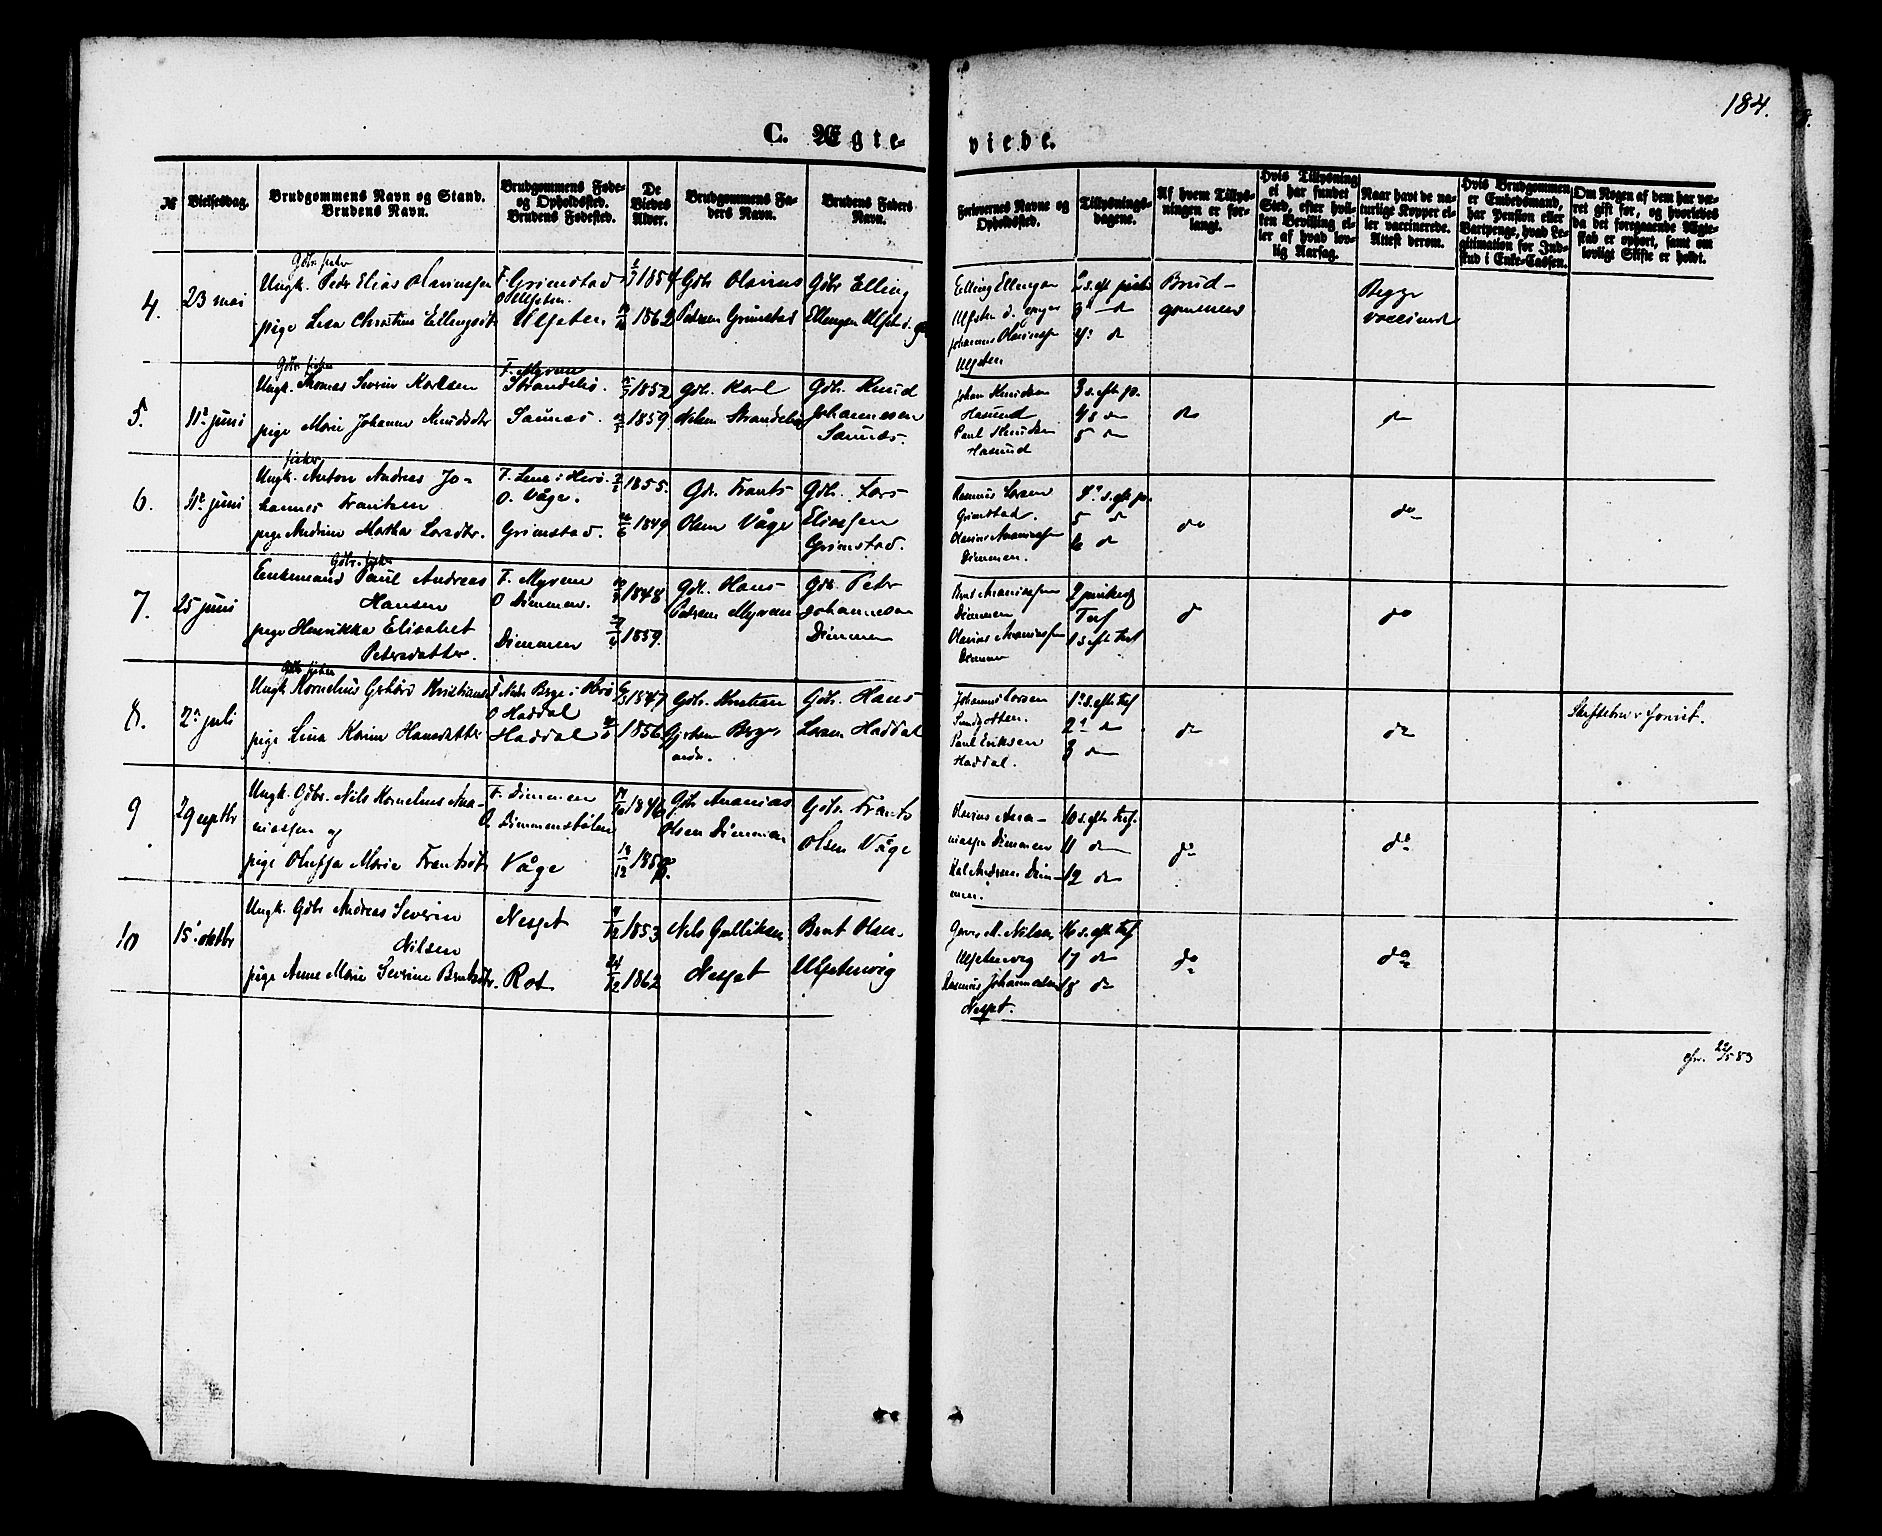 184.
C. Ægte-
viede.
№
Vielsesdag.
Brudgommens Navn og Stand.
Brudens Navn.
Brudgommens Føde-
og Opholdssted.
Brudens Fødested.
De
Viedes
Alder.
Brudgommens Fa-
ders Navn.
Brudens Faders
Navn.
Forlovernes Navne og
Opholdssted.
Tillysnings-
dagene.
Af hvem Tillys-
ningen er for-
langt.
Hvis Tillysning
ei har fundet
Sted, efter hvil-
ken Bevilling el-
ler af hvad lov-
lig Aarsag.
Naar havt de na-
turlige Kopper el-
ler vaccinerede.
Attest derom.
Hvis Brudgommen
er Embedsmand,
har Pension eller
Vartpenge, hvad Le-
gitimation for Ind-
skud i Enke-Cassen.
Om Nogen af dem har væ-
ret gift før, og hvorledes
da det foregaaende Ægte-
skab er ophørt, samt om
lovligt Skifte er holdt.
4.
23 mai
Gdbr. fisker
Ungk. Peder Elias Olariussen
pige Lisa Christine Ellingsdt
F. Grimstad
O Ulfsten
Ulfsten
1854
1862
Gdbr Olarius
Pedersen Grimstad
Gdbr Elling
Ellingsen Ulfst
Elling Ellingsen
Johannes Olariussen
Ulfsten
2 s. eft pintse
3 do
4 do
Brud-
gommen
Begge
vaccinerede
5.
11 juni
Gdbr. fisker
Ungk. Thomas Severin Karlsen
pige Marie Johanne Knudsdtr
F. Myren
Strandebø
Saunes
1852
1859
Gdbr. Karl
Nilsen Strandebø
Gdbr. Knud
Johannessen
Saunes.
Johan Knudsen
Hasund
Paul Knudsen
Hasund
3 s. eft. p.
4 s do
5 do
do
do
6.
11 juni
fisker
Ungk. Anton Andreas Jo-
hannes Frantsen
pige Andrine Martha Larsdtr.
F. Leine i Herø.
O. Våge.
Grimstad.
1855.
1849
Gdbr. Frants
Olsen Våge
Gdbr. Lars
Eliassen
Grimstad.
Rasmus Larsen
Grimstad.
Olarius Ananiassen
Dimmen.
4 s. eft. p.
5 do
6 do
do
do
7.
25 juni
Gdbr. fisker
Enkemand Paul Andreas
Hansen
pige Henrikka Elisabet
Petersdatter.
F. Myren
O Dimmen.
Dimmen
1848
1859.
Gdbr. Hans
Pedersen Myren
Gdbr Peter
Johannessen
Dimmen
Ananiassen
Dimmen
Olarius Ananiassen
Dimmen
2 pintsedag
Tref
1 s. eft Tref
do
do
8.
2 juli
Gdbr fisker
Ungk Kornelius Kristiansen
pige Lina Karine Hansdatter
F Nedre Berge i Herø
O Haddal
Haddal
1847
1856
Gdbr. Kristian
Berge
nedre.
Gdbr. Hans
Larsen Haddal
Johannes Larsen
Paul Eriksen
Haddal.
1 s. eft. Tref
2 do
3 do
do
do
9
2 septbr
Ungk. Gdbr. Nils Kornelius Ana-
niassen og
pige Oluffa Marie Frantsdt
F. Dimmen
O. Dimmenstølen
Våge
1846
Gdbr Ananias
Olsen Dimmen
Gdbr. Frants
Olsen Våge
Olarius Ana-
niassen Dimmen
Karl Andreas Dim-
men.
10 s. eft. Tref.
11 do
12 do
do
do
10
15 oktbr
Ungk. Gdbr Andreas Severin
Nilsen
pige Anne Marie Severine Berntsdtr.
Nesset
Rot
1853
1862
Nils Gulliksen
Nesset
Bernt Olsen
Ulfstenvig
Nilsen
Ulfstenvig
Rasmus Johannesen
Nesset.
16 s. eft Tref
17 do
18 do
do
do
22/5 83